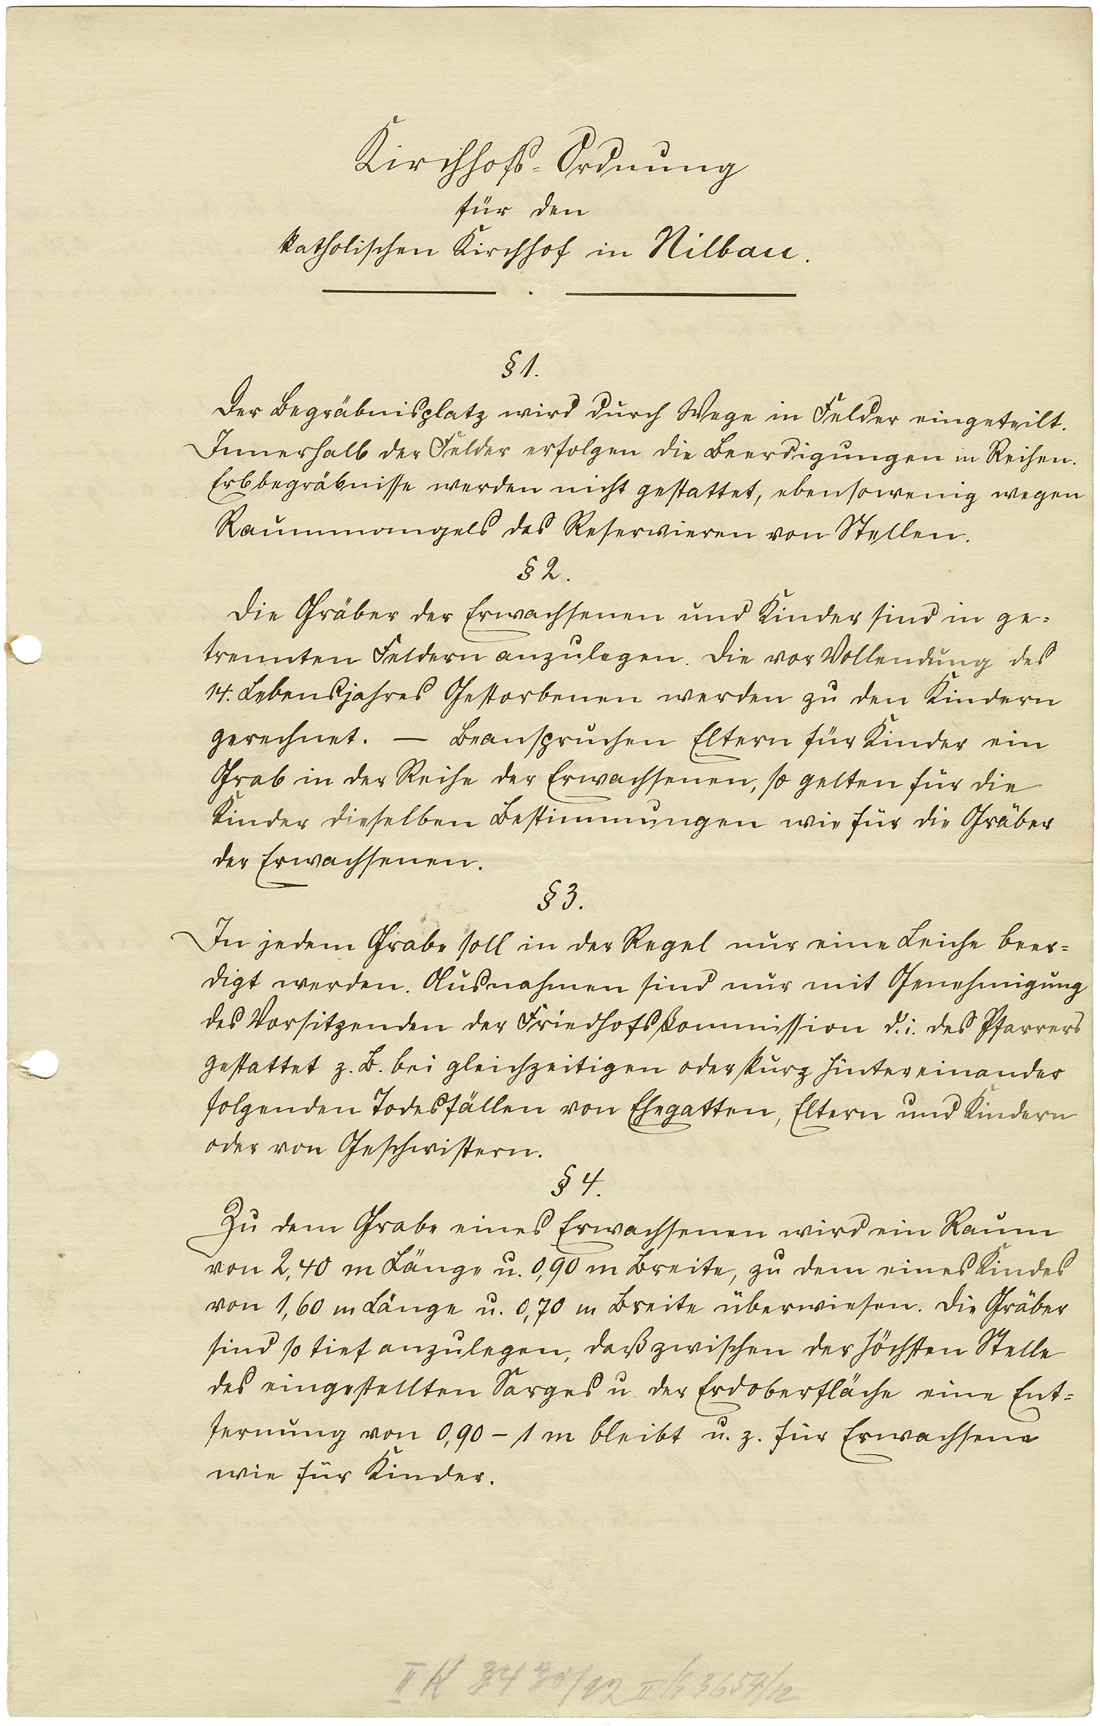 Kirchhofs-Ordnung
für den
katholischen Kirchhof in Nilbau.
§ 1.
Der Begräbnisplatz wird durch Wege in Felder eingeteilt.
Innerhalb der Felder erfolgen die Beerdigungen in Reihen.
Erbbegräbnisse werden nicht gestattet, ebensowenig wegen
Raummangels das Reservieren von Stellen.
§ 2.
Die Gräber der Erwachsenen und Kinder sind in ge-
trennten Feldern anzulegen. Die vor Vollendung des
14. Lebensjahres Gestorbenen werden zu den Kindern
gerechnet. — Beanspruchen Eltern für Kinder ein
Grab in der Reihe der Erwachsenen, so gelten für die
Kinder dieselben Bestimmungen wie für die Gräber
der Erwachsenen.
§ 3.
In jedem Grabe soll in der Regel nur eine Leiche beer-
digt werden. Ausnahmen sind nur mit Genehmigung
des Vorsitzenden der Friedhofskommission d. i. des Pfarrers
gestattet z. B. bei gleichzeitigen oder kurz hintereinander
folgenden Todesfällen von Ehegatten, Eltern und Kindern
oder von Geschwistern.
§ 4.
Zu dem Grabe eines Erwachsenen wird ein Raum
von 2,40 m Länge u. 0,90 m Breite, zu dem eines Kindes
von 1,60 m Länge u. 0,70 m Breite überwiesen. Die Gräber
sind so tief anzulegen, daß zwischen der höchsten Stelle
des eingestellten Sarges u. der Erdoberfläche eine Ent-
fernung von 0,90 – 1 m bleibt u. z. für Erwachsene
wie für Kinder.
II K 3657/12